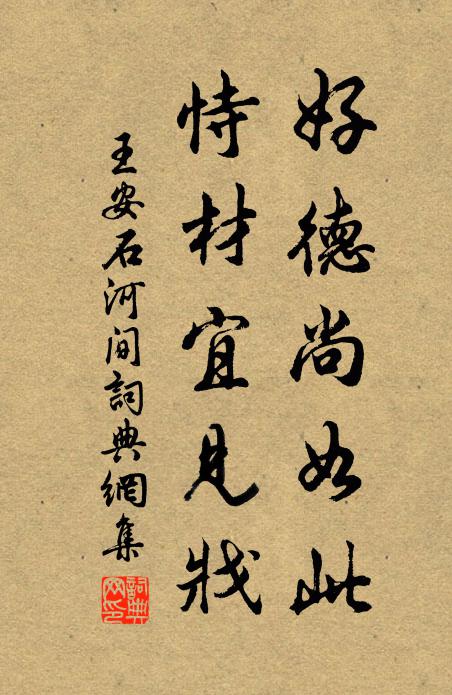 好德尚如此
恃材宜見戕
王安石河間詞典網集
詞典網印